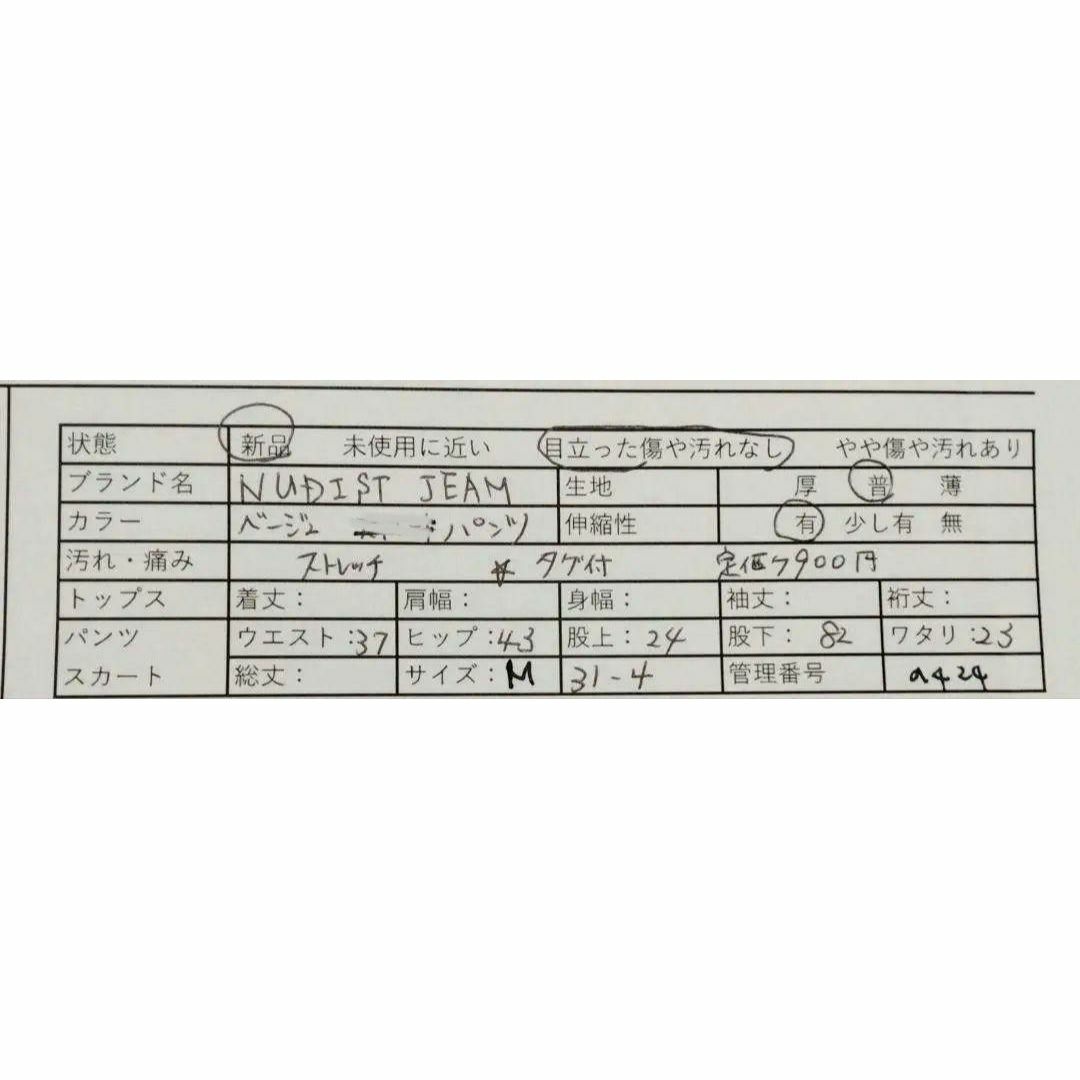 状態 新品 未使用に近い 目立った傷や汚れなし やや傷や汚れあり
ブランド名 NUDIST JEAM 生地 厚 普 薄
カラー ベージュ パンツ 伸縮性 有 少し有 無
汚れ・痛み ストレッチ ☆ タグ付 定価7900円
トップス 着丈： 肩幅： 身幅： 袖丈： 裄丈：
パンツ ウエスト：37 ヒップ：43 股上：24 股下：82 ワタリ：23
スカート 総丈： サイズ：M 31-4 管理番号 a424